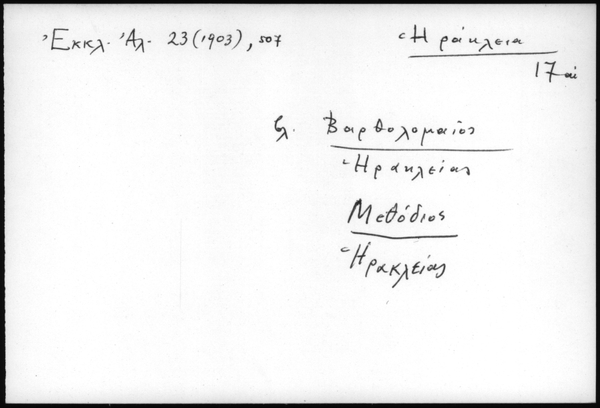 Ἐκκλ. Ἀλ. 23 (1903), 507
Ἡράκλεια
17 αἰ
βλ. Βαρθολομαῖος
Ἡρακλείας
Μεθόδιος
Ἡρακλείας